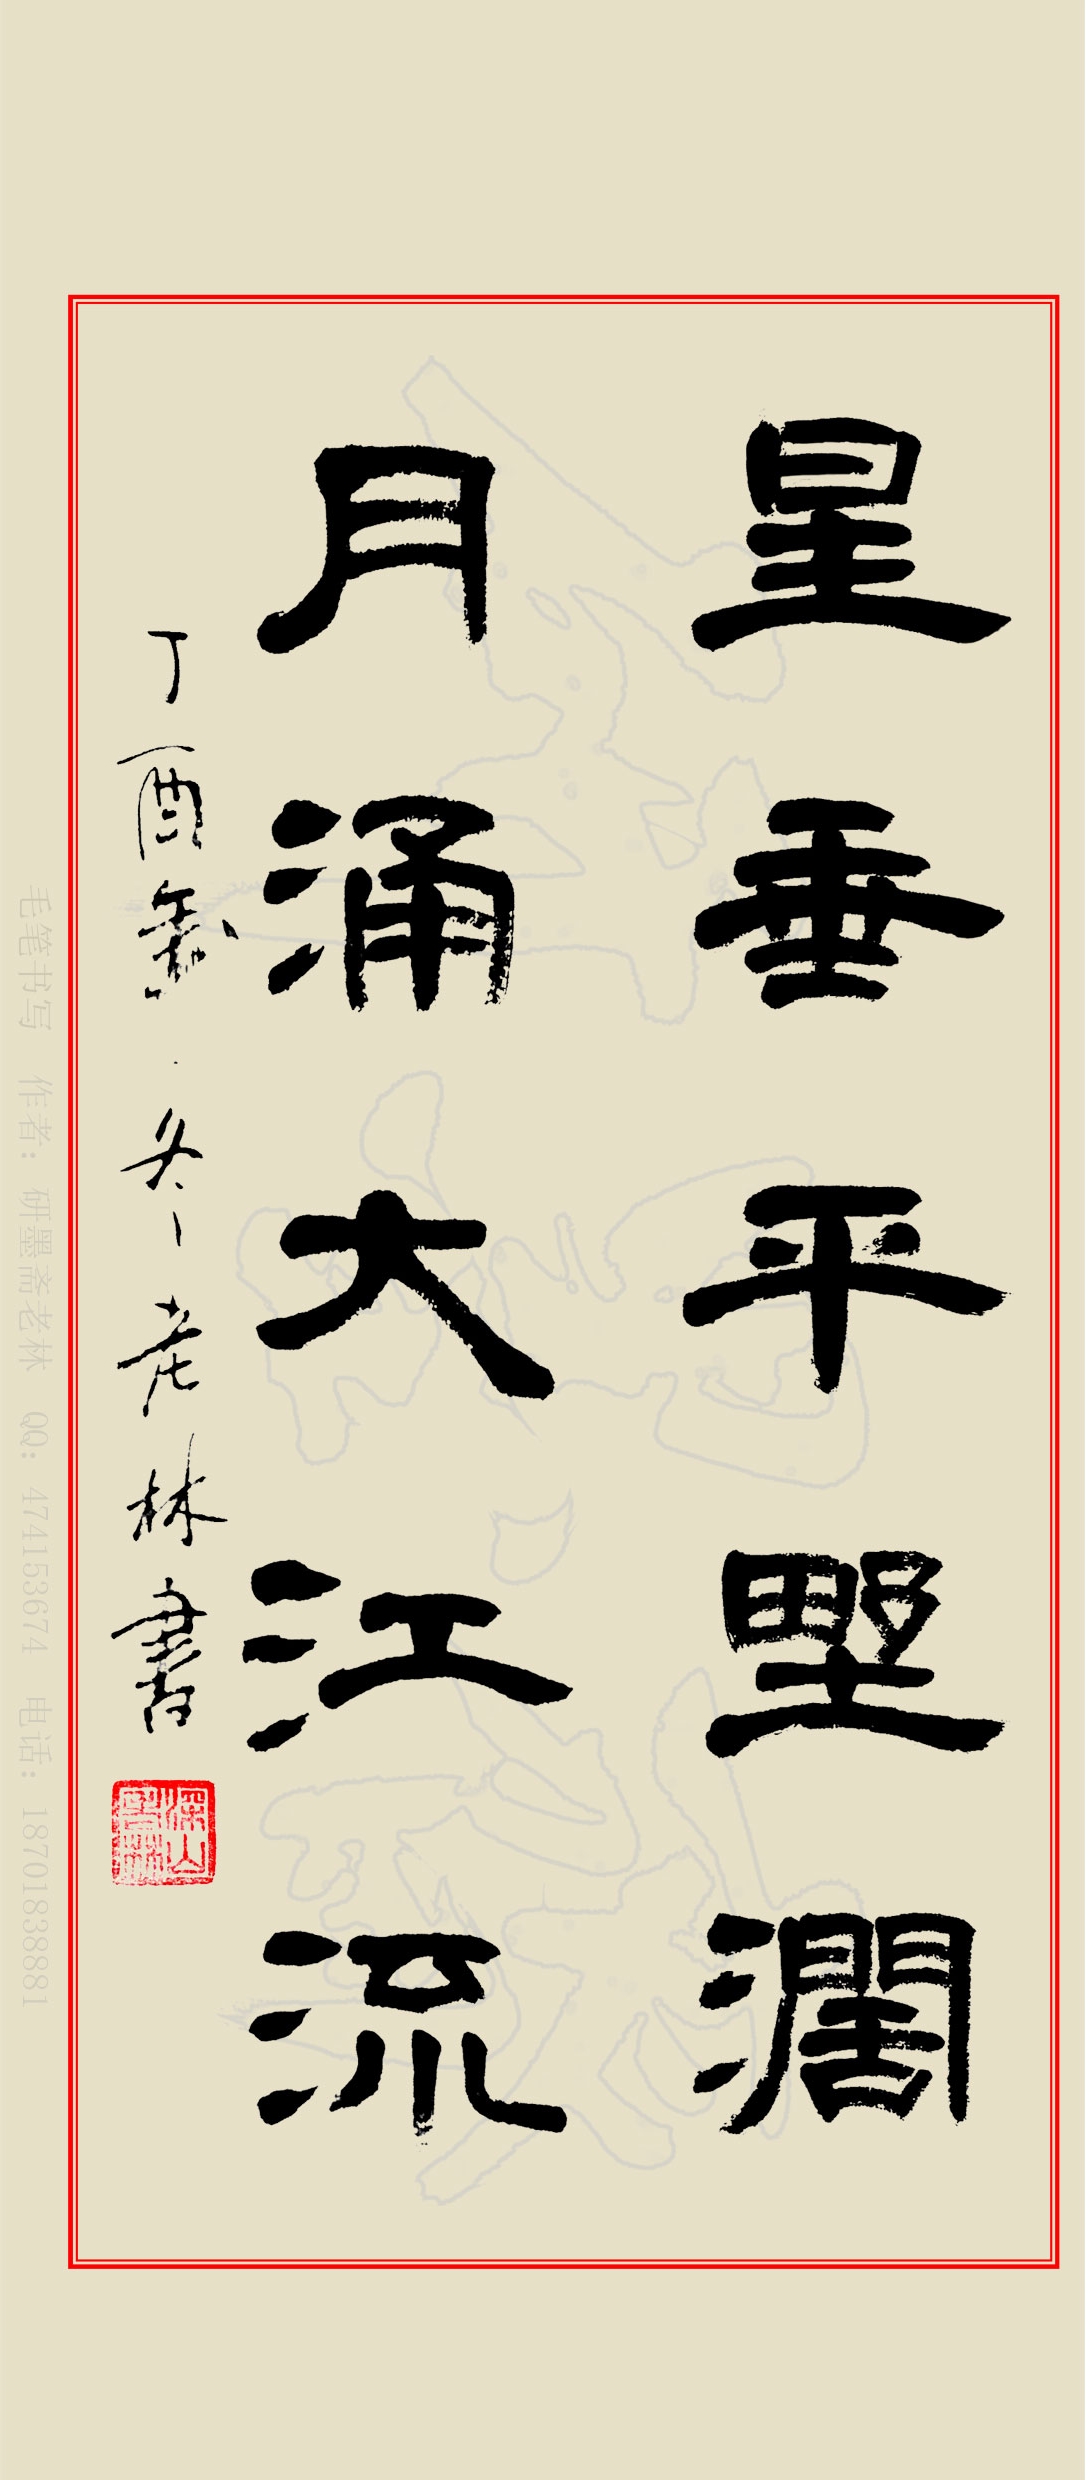 星垂平野濶
月涌大江流
丁酉 冬 老林書
深山老林
毛笔书写 作者：研墨斋老林 QQ：474153674 电话：18701838881